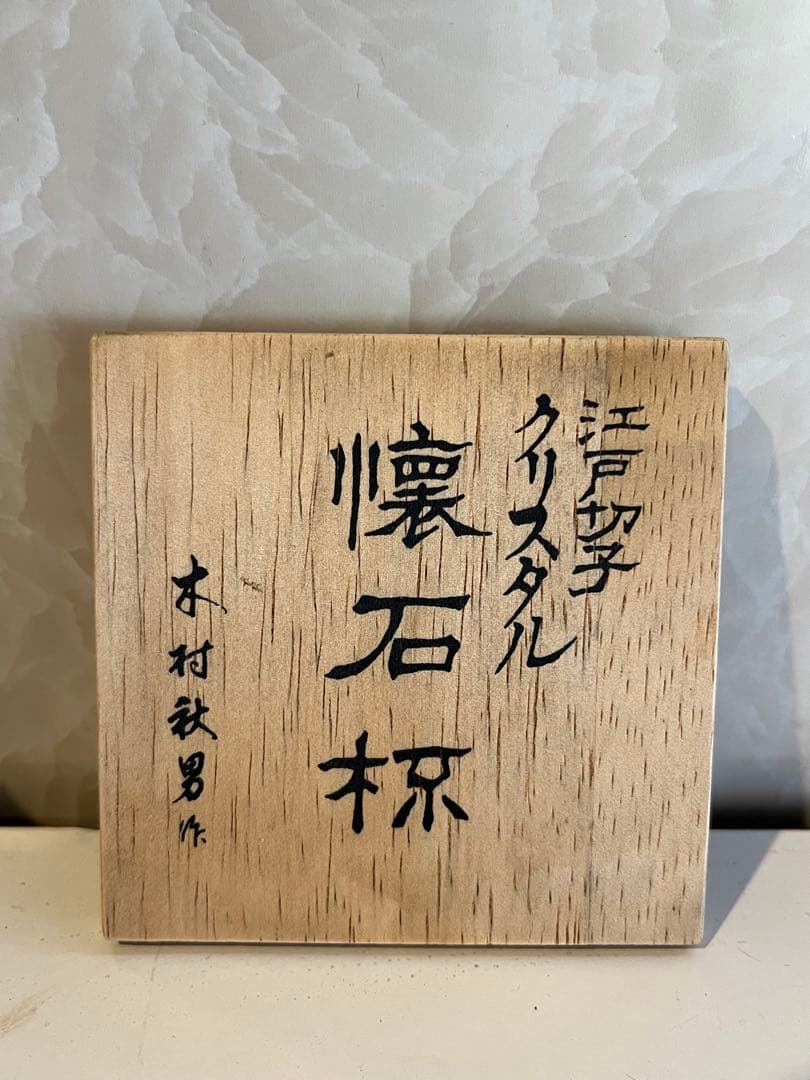 江戸切子
クリスタル
懐石杯
木村秋男作